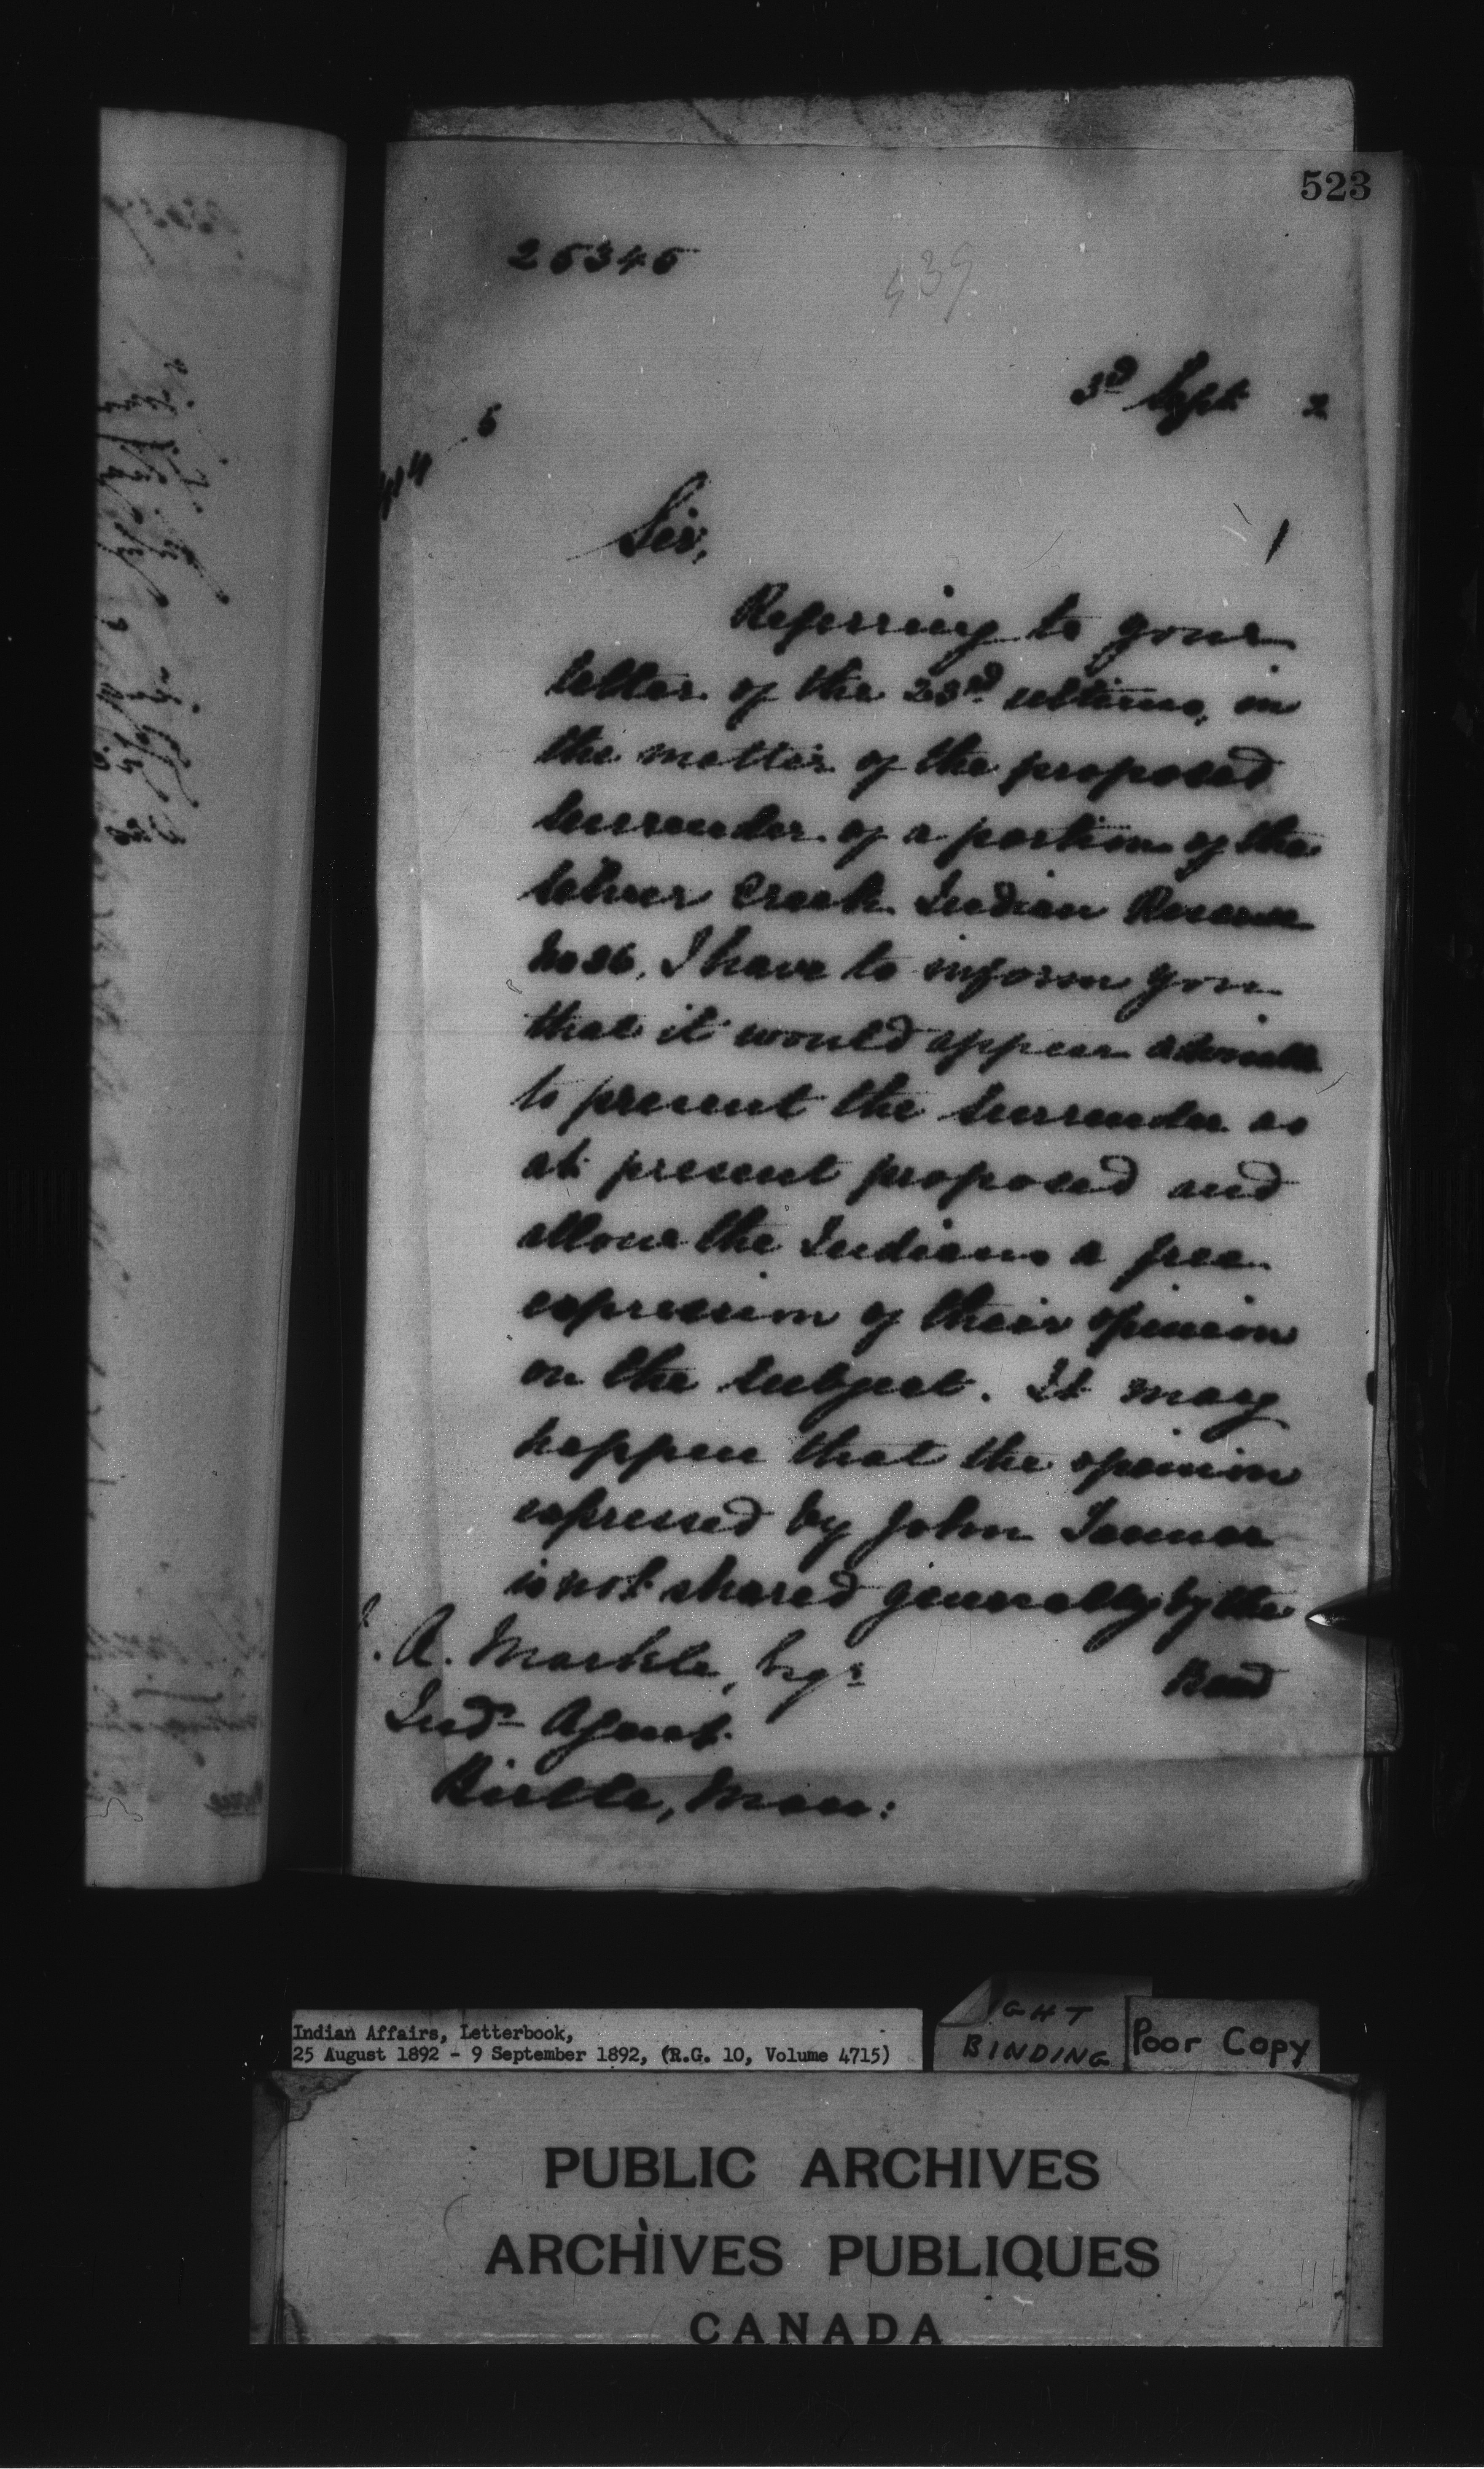 523
25345
439
3rd Sept 2
5
414
Sir,
Referring to your
letter of the 23rd ultimo, in
the matter of the proposed
surrender of a portion of the
Silver Creek Indian Reserve
No 36, I have to inform you
that it would appear advisable
to present the surrender as
at present proposed and
allow the Indians a free
expression of their opinion
on the subject. It may
happen that the opinion
expressed by John Tanner
is not shared generally by the
Band
. A. Markle, Esqr
Indn Agent
Birtle, Man:
Indian Affairs, Letterbook,
25 August 1892 - 9 September 1892, (R.G. 10, Volume 4715)
GHT
BINDING
Poor Copy
PUBLIC ARCHIVES
ARCHIVES PUBLIQUES
CANADA